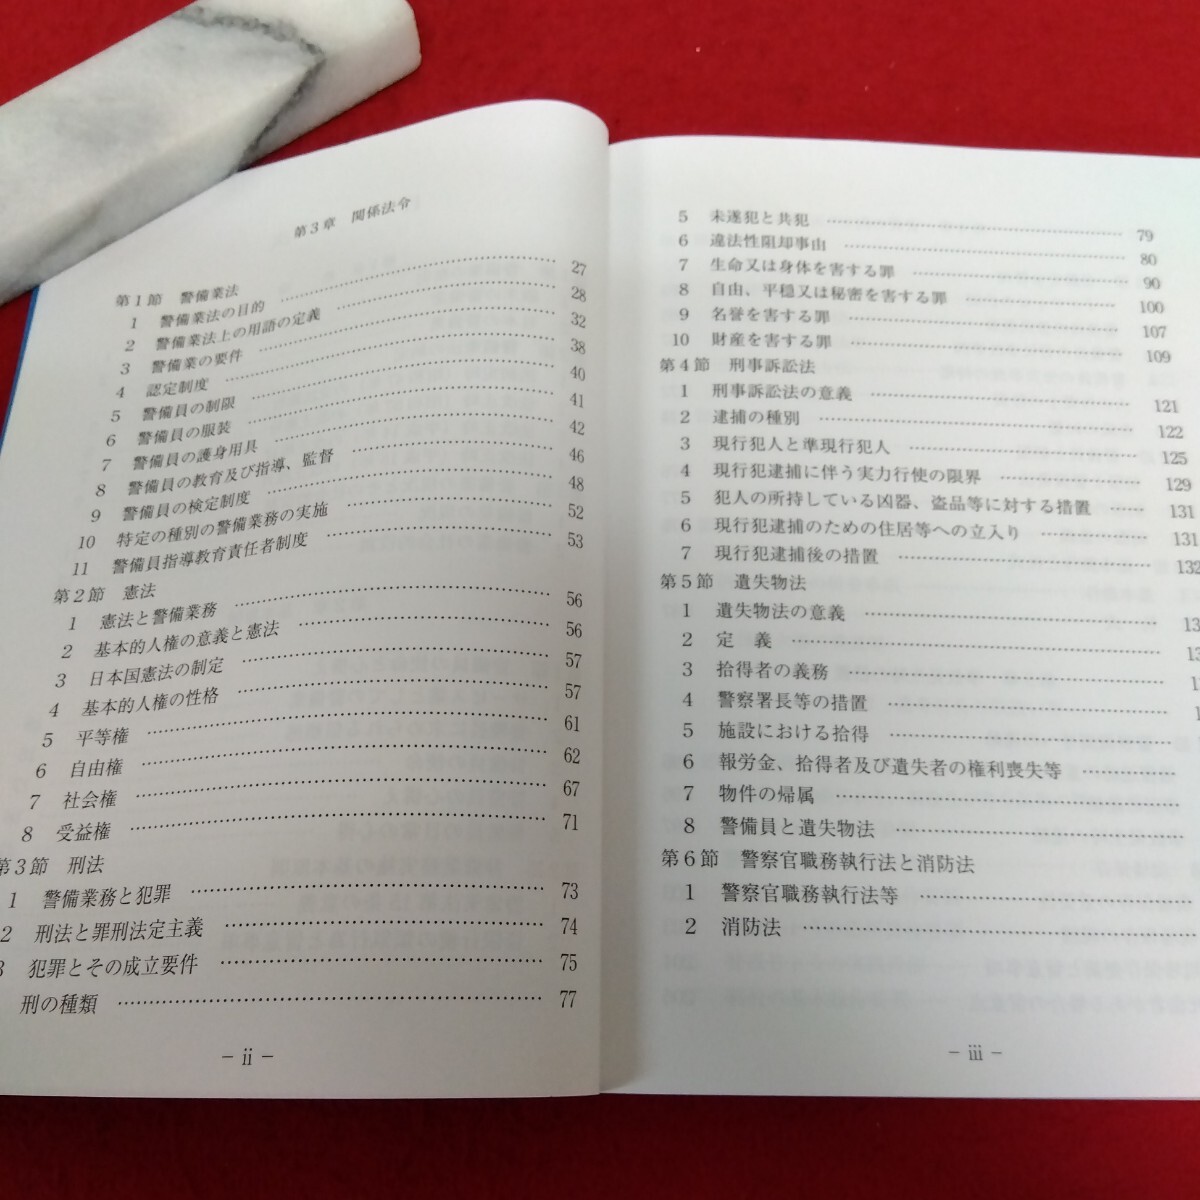 第3章　関係法令
第1節　警備業法
1　警備業法の目的 27
2　警備業法上の用語の定義 28
3　警備業の要件 32
4　認定制度 38
5　警備員の制限 40
6　警備員の服装 41
7　警備員の護身用具 42
8　警備員の教育及び指導、監督 46
9　警備員の検定制度 48
10　特定の種別の警備業務の実施 52
11　警備員指導教育責任者制度 53
第2節　憲法
1　憲法と警備業務 56
2　基本的人権の意義と憲法 56
3　日本国憲法の制定 57
4　基本的人権の性格 57
5　平等権 61
6　自由権 62
7　社会権 67
8　受益権 71
第3節　刑法
1　警備業務と犯罪 73
2　刑法と罪刑法定主義 74
3　犯罪とその成立要件 75
刑の種類 77
− ii −
5　未遂犯と共犯 79
6　違法性阻却事由 80
7　生命又は身体を害する罪 90
8　自由、平穏又は秘密を害する罪 100
9　名誉を害する罪 107
10　財産を害する罪 109
第4節　刑事訴訟法
1　刑事訴訟法の意義 121
2　逮捕の種別 122
3　現行犯人と準現行犯人 125
4　現行犯逮捕に伴う実力行使の限界 129
5　犯人の所持している凶器、盗品等に対する措置 131
6　現行犯逮捕のための住居等への立入り 131
7　現行犯逮捕後の措置 132
第5節　遺失物法
1　遺失物法の意義 13
2　定　義 13
3　拾得者の義務
4　警察署長等の措置
5　施設における拾得
6　報労金、拾得者及び遺失者の権利喪失等
7　物件の帰属
8　警備員と遺失物法
第6節　警察官職務執行法と消防法
1　警察官職務執行法等
2　消防法
− iii −